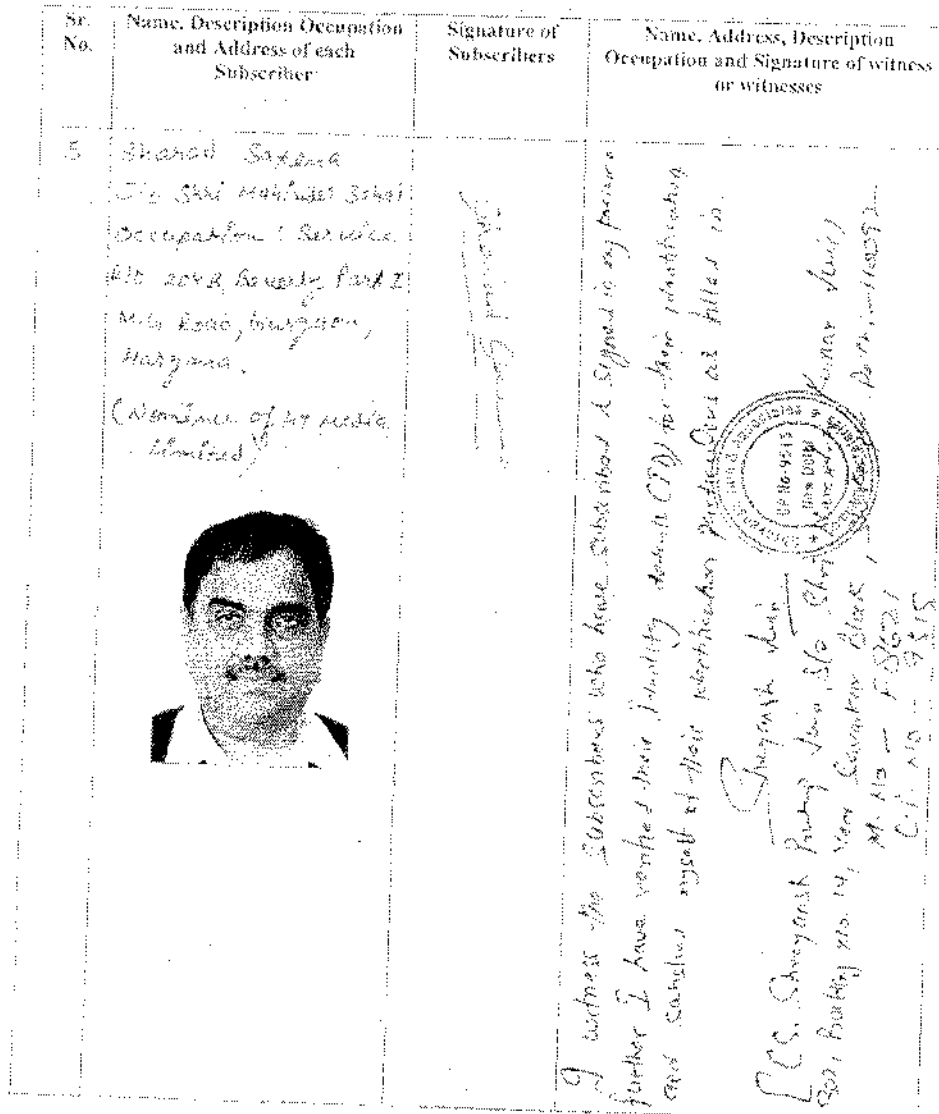 Sr.
No.
Name, Description Occupation
and Address of each
Subscriber
Signature of
Subscribers
Name, Address, Description
Occupation and Signature of witness
or witnesses
5
Sharad Saxena
Shri
Occupation : Service
Beverly Park I
M.G Road, Gurgaon,
Haryana.
(Nominee of HT Media
Limited)
I witness the Subscribers who have Subscribed & Signed in my presence
further I have verified their Identity details (ID) for their identification
and satisfied myself of their identification particulars as filled in.
Shreyansh Jain
[CS. Shreyansh Jain S/o Shri Kumar Jain)
No. 14,
M. No - F
C.P. NO - 9515
CP No-9515
New Delhi